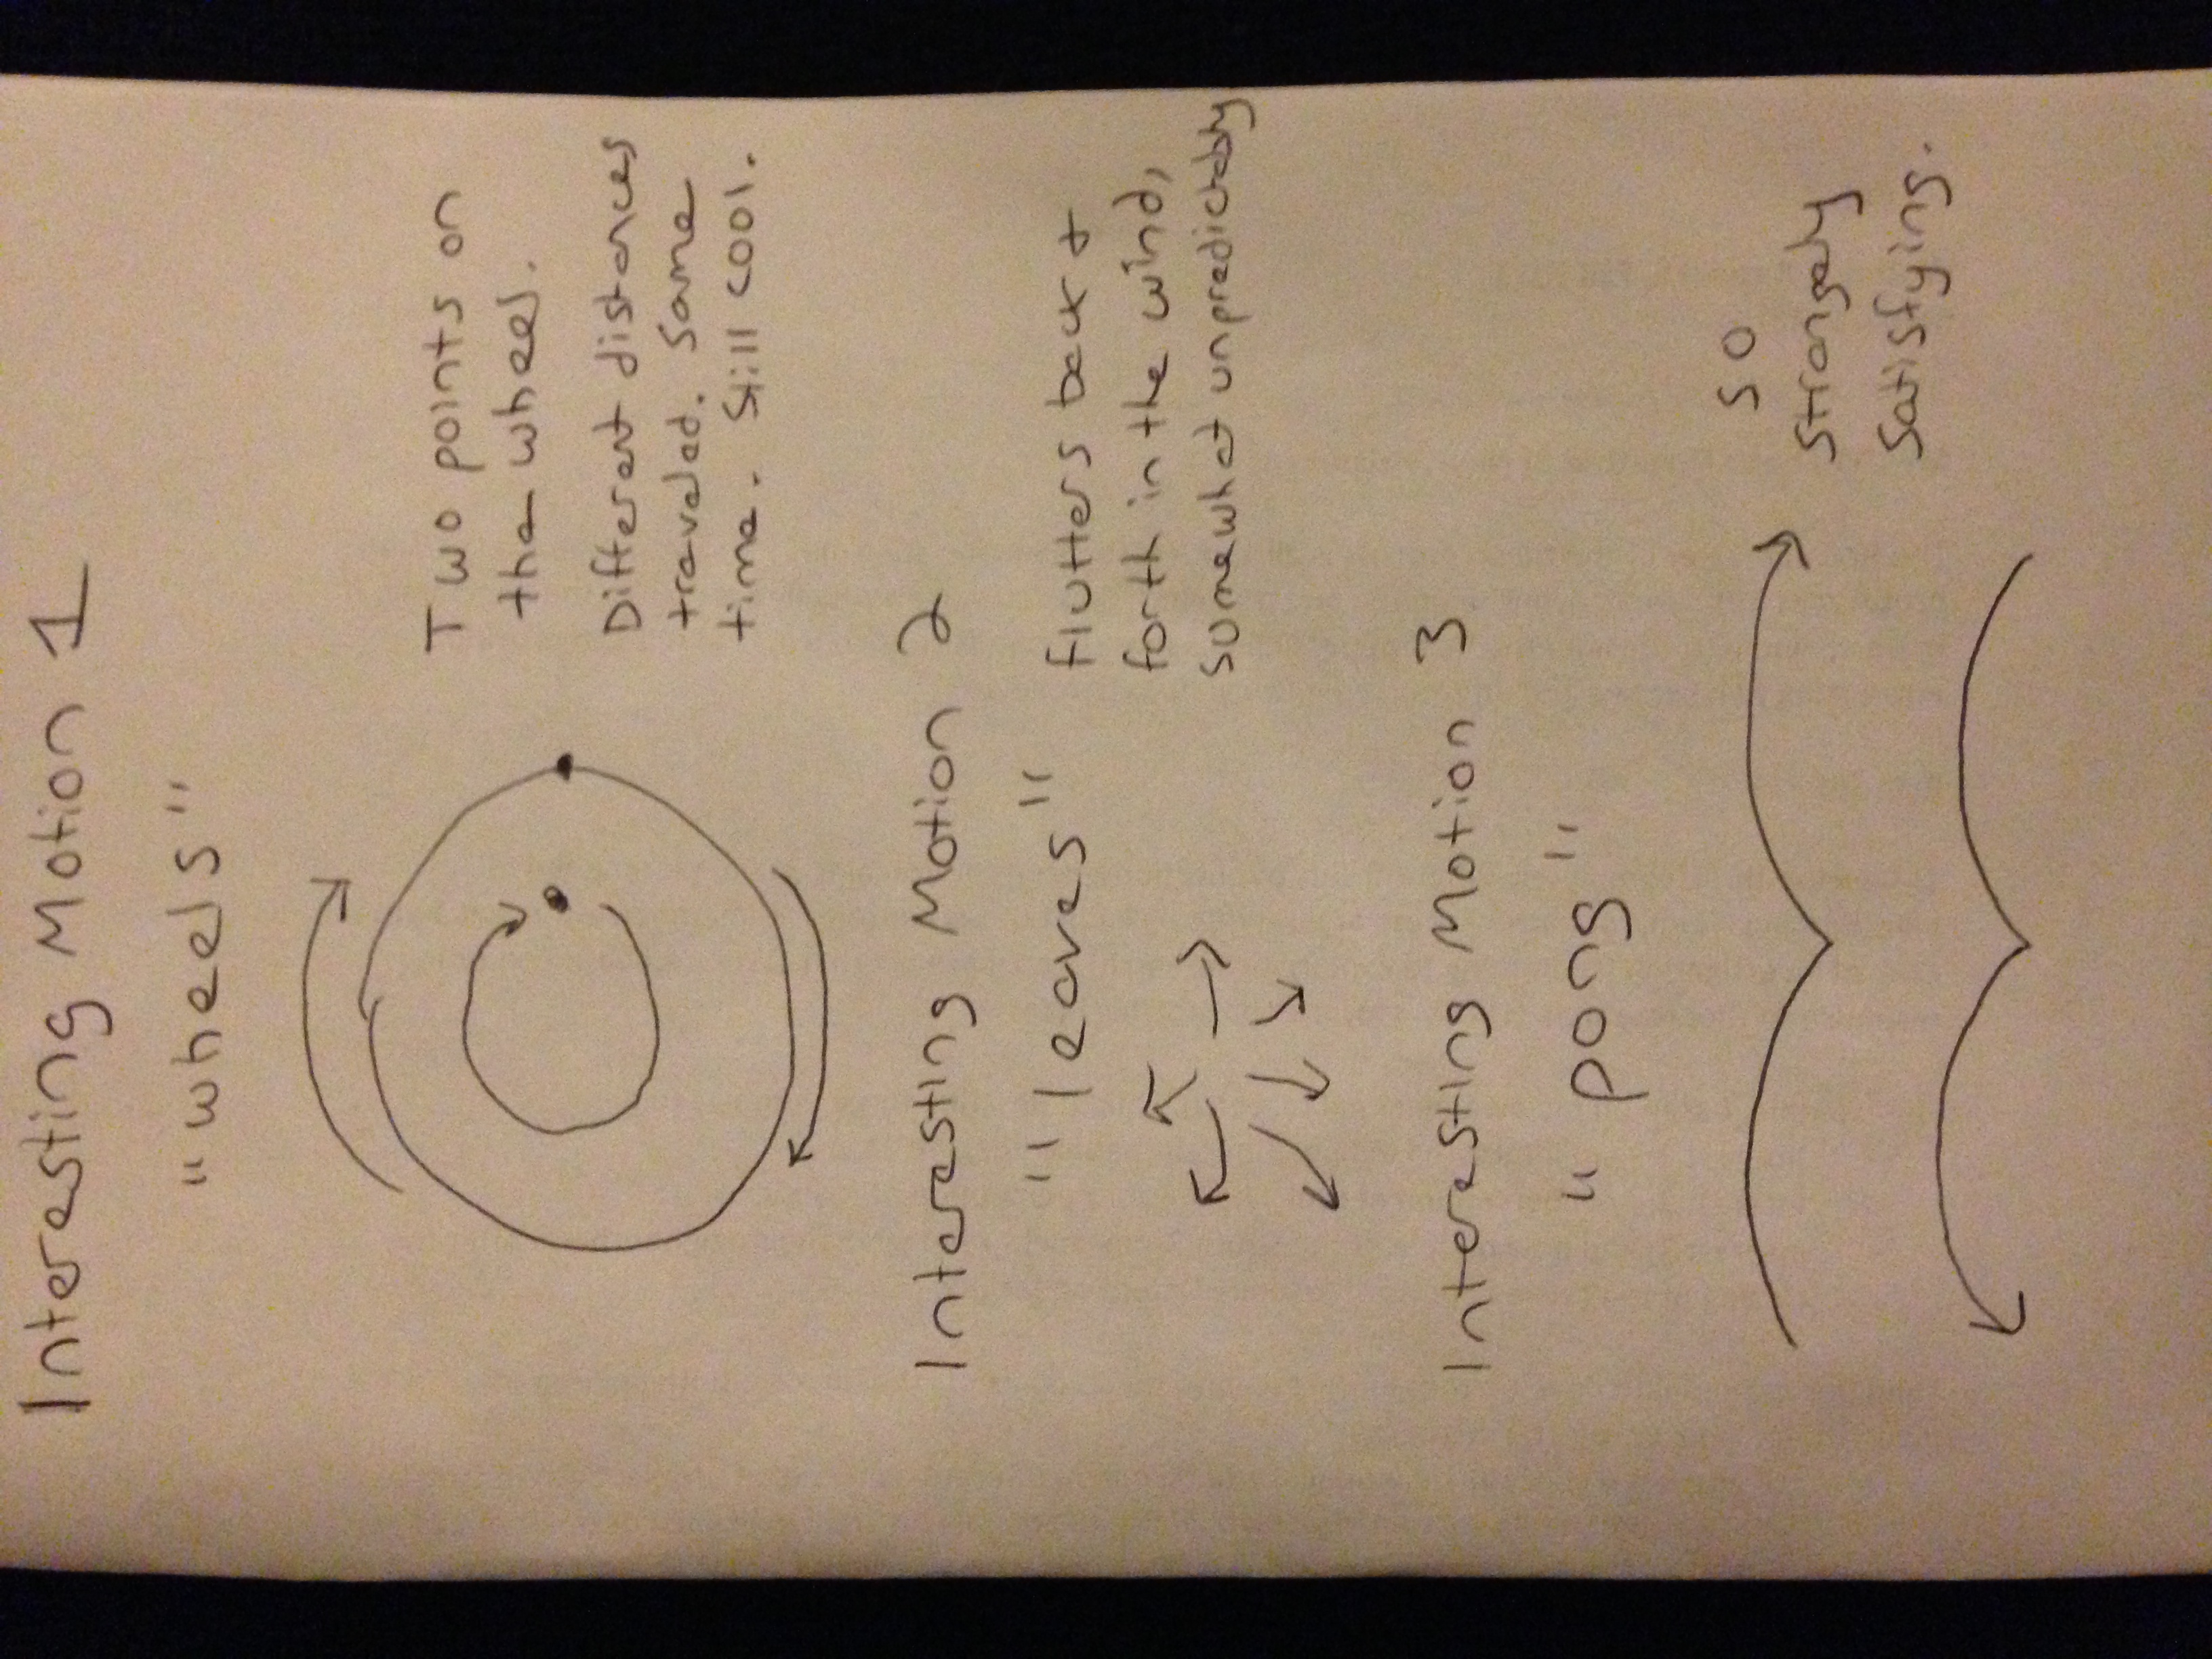 Interesting Motion 1
"wheels"
Two points on
the wheel.
Different distances
traveled. Same
time. Still cool.
Interesting Motion 2
"leaves"
Flutters back &
forth in the wind,
somewhat unpredictably
Interesting Motion 3
"pong"
so
strangely
satisfying.